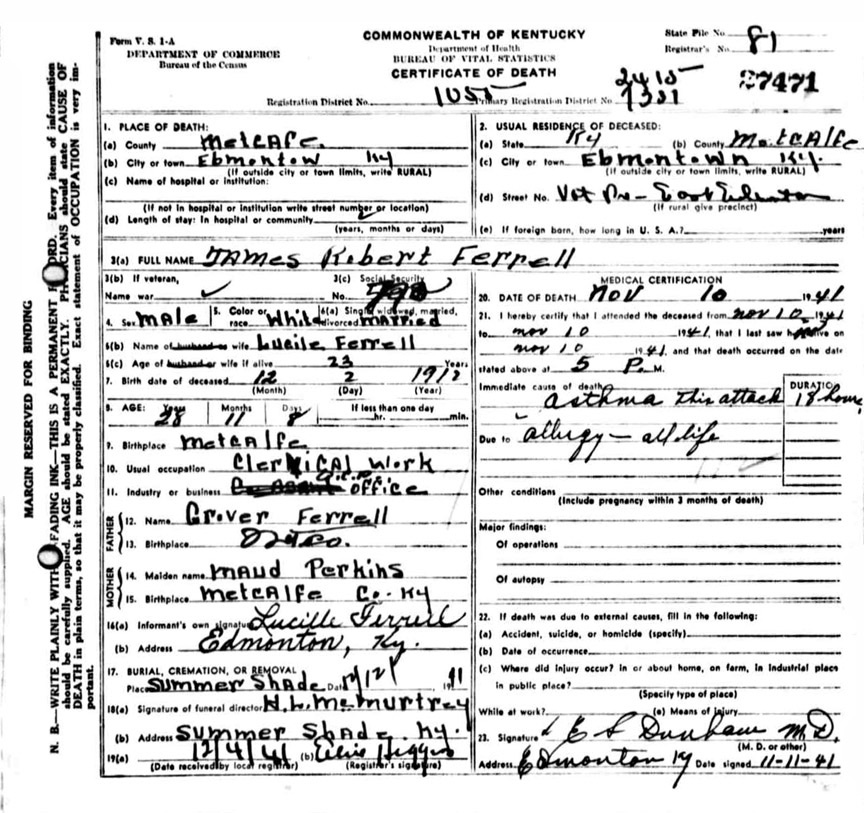 Form V. S. 1-A
DEPARTMENT OF COMMERCE
Bureau of the Census
COMMONWEALTH OF KENTUCKY
Department of Health
BUREAU OF VITAL STATISTICS
CERTIFICATE OF DEATH
State File No.
Registrar's No. 81
27471
Registration District No. 1055 Primary Registration District No. 2415
MARGIN RESERVED FOR BINDING
N. B.—WRITE PLAINLY WITH FADING INK—THIS IS A PERMANENT RECORD. Every item of information
should be carefully supplied. AGE should be stated EXACTLY. PHYSICIANS should state CAUSE OF
DEATH in plain terms, so that it may be properly classified. Exact statement of OCCUPATION is very im-
portant.
1. PLACE OF DEATH:
(a) County Metcafe.
(b) City or town Ebmontow Ky
(If outside city or town limits, write RURAL)
(c) Name of hospital or institution:
(If not in hospital or institution write street number or location)
(d) Length of stay: In hospital or community
(years, months or days)
2. USUAL RESIDENCE OF DECEASED:
(a) State Ky (b) County Metcalfe
(c) City or town Ebmontown Ky.
(If outside city or town limits, write RURAL)
(d) Street No. Vot Pr-
(If rural give precinct)
(e) If foreign born, how long in U. S. A.? years
3(a) FULL NAME James Robert Ferrell
3(b) If veteran,
Name war
3(c) Social Security
No.
4. Sex Male 5. Color or race White 6(a) Single, widowed, married, divorced Married
6(b) Name of husband or wife Lucile Ferrell
6(c) Age of husband or wife if alive 23 Years
7. Birth date of deceased 12 2 1912
(Month) (Day) (Year)
8. AGE: Years 28 Months 11 Days 8 If less than one day
hr. min.
9. Birthplace Metcalfe
10. Usual occupation Clerkical Work
11. Industry or business office
FATHER
12. Name Grover Ferrell
13. Birthplace
MOTHER
14. Maiden name Maud Perkins
15. Birthplace Metcalfe Co. Ky
16(a) Informant's own signature Lucille Ferrell
(b) Address Edmonton, Ky.
17. BURIAL, CREMATION, OR REMOVAL
Place Summer Shade Date
18(a) Signature of funeral director H. L. McMurtrey
(b) Address Summer Shade, Ky.
19(a) 12/4/41 (b)
(Date received by local registrar) (Registrar's signature)
MEDICAL CERTIFICATION
20. DATE OF DEATH Nov 10 1941
21. I hereby certify that I attended the deceased from Nov 10, 1941
to Nov 10 1941, that I last saw h alive on
Nov 10 1941, and that death occurred on the date
stated above at 5 P. M.
Immediate cause of death
DURATION
asthma this attack 18 hours
Due to allergy - all life
Other conditions
(Include pregnancy within 3 months of death)
Major findings:
Of operations
Of autopsy
22. If death was due to external causes, fill in the following:
(a) Accident, suicide, or homicide (specify)
(b) Date of occurrence
(c) Where did injury occur? in or about home, on farm, in industrial place
in public place?
(Specify type of place)
While at work? (e) Means of injury
23. Signature E S Dunham M.D.
(M. D. or other)
Address Edmonton Ky Date signed 11-11-41